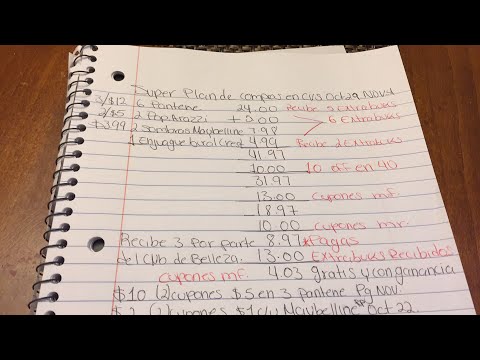 Super Plan de compras en CVS Oct 29 NOV 4
3/$12 6 Pantene 24.00 Recibe 5 Extrabucks
2/$5 2 Pop Arazzi + 5.00 > 6 Extrabucks
+ 3.99 2 Sombras Maybelline 7.98
1 Enjuague bucal Crest 4.99 Recibe 2 Extrabucks
41.97
10.00 10 off en 40
31.97
13.00 cupones mf.
18.97
10.00 cupones mr.
Recibe 3 por parte 8.97 *Pagas
del Club de Belleza. 13.00 Extrabucks Recibidos
4.03 gratis y con ganancia
cupones mf.
$10 (2) cupones $5 en 3 pantene Pg NOV.
(2) cupones $1 c/u Maybelline Oct 22.